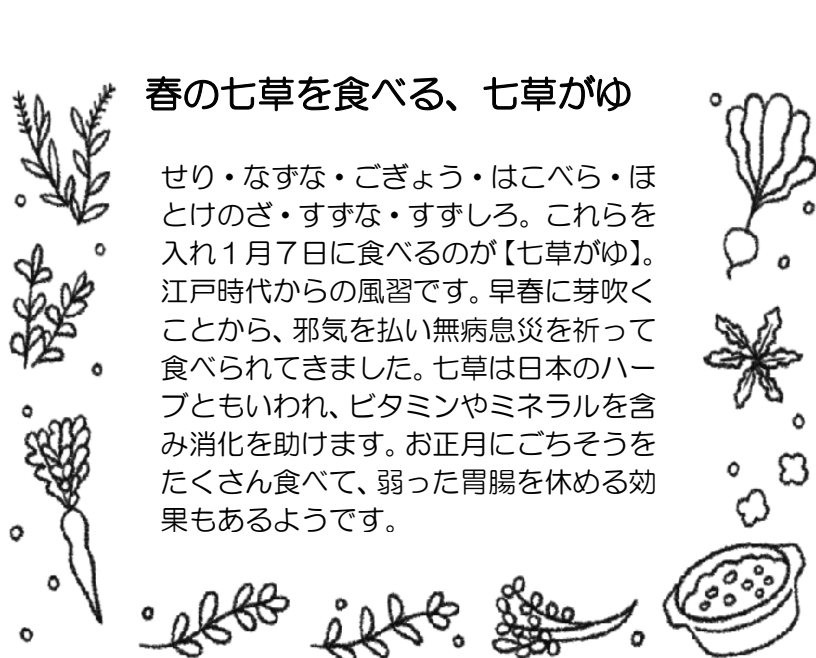 春の七草を食べる、七草がゆ
せり・なずな・ごぎょう・はこべら・ほ
とけのざ・すずな・すずしろ。これらを
入れ1月7日に食べるのが【七草がゆ】。
江戸時代からの風習です。早春に芽吹く
ことから、邪気を払い無病息災を祈って
食べられてきました。七草は日本のハー
ブともいわれ、ビタミンやミネラルを含
み消化を助けます。お正月にごちそうを
たくさん食べて、弱った胃腸を休める効
果もあるようです。